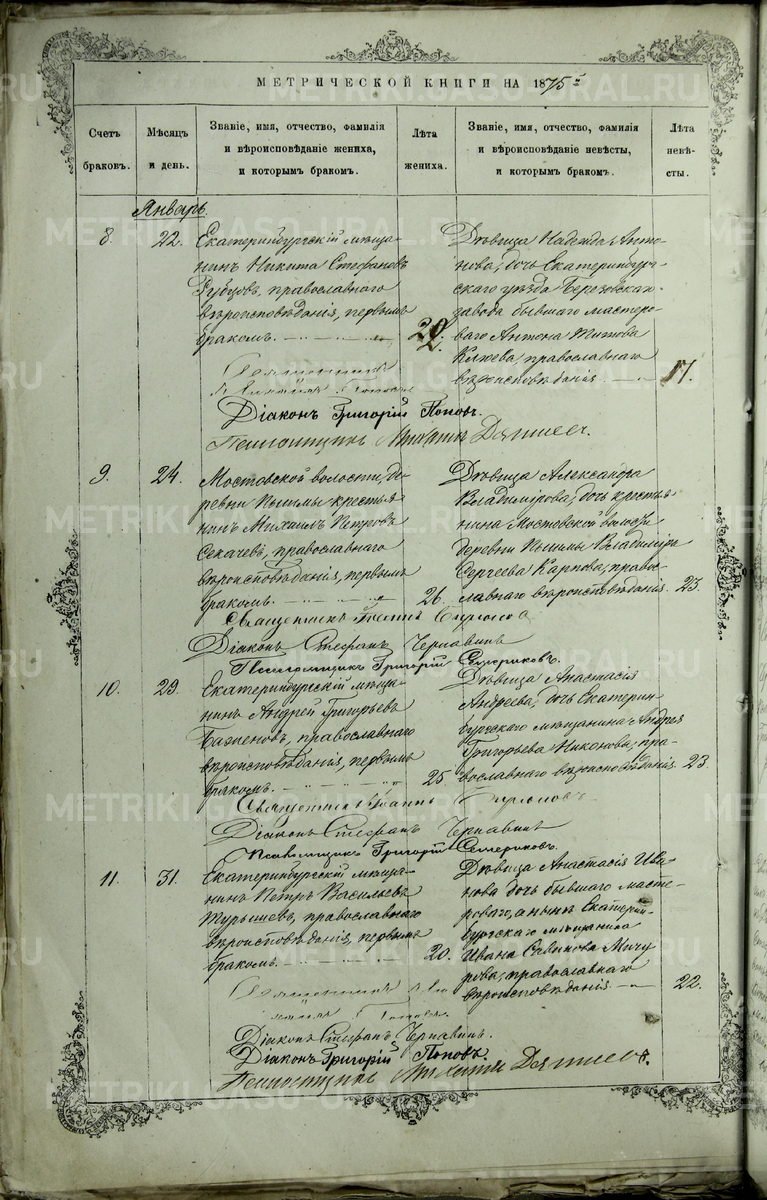 МЕТРИЧЕСКОЙ КНИГИ НА 1875й
Счетъ браковъ.
Мѣсяцъ и день.
Званіе, имя, отчество, фамилія и вѣроисповѣданіе жениха, и которымъ бракомъ.
Лѣта жениха.
Званіе, имя, отчество, фамилія и вѣроисповѣданіе невѣсты, и которымъ бракомъ.
Лѣта невѣ-сты.
Январь.
8.
22.
Екатеринбургскій мѣща-
нинъ Никита Стефановъ
Рубцовъ, православнаго
вѣроисповѣданія, первымъ
бракомъ.
Дѣвица Надежда Анто-
нова, дочь Екатеринбург-
скаго уѣзда Березовскаго
завода бывшаго мастеро-
ваго Антона Титова
Клюева, православнаго
вѣроисповѣданія
17.
Священникъ
Діаконъ Григорій Поповъ.
Псаломщикъ
9.
24.
Мостовской волости, де-
ревни Пышмы крестья-
нинъ Михаилъ Петровъ
Секачевъ, православнаго
вѣроисповѣданія, первымъ
бракомъ.
26.
Дѣвица Александра
Владимірова, дочь крестья-
нина Мостовской волости
деревни Пышмы Владиміра
Сергеева Карпова, право-
славнаго вѣроисповѣданія.
23.
Священникъ Іоаннъ
Діаконъ Стефанъ Чернавинъ
Псаломщикъ Григорій
10.
29.
Екатеринбургскій мѣща-
нинъ Андрей Григорьевъ
Баженовъ, православнаго
вѣроисповѣданія, первымъ
бракомъ.
25
Дѣвица Анастасія
Андреева, дочь Екатерин-
бургскаго мѣщанина Андрея
Григорьева Никонова, пра-
вославнаго вѣроисповѣданія.
23
Священникъ Іоаннъ
Діаконъ Стефанъ Чернавинъ
Псаломщикъ Григорій
11.
31.
Екатеринбургскій мѣща-
нинъ Петръ Васильевъ
Турышевъ, православнаго
вѣроисповѣданія, первымъ
бракомъ.
20.
Дѣвица Анастасія Ива-
нова дочь бывшаго масте-
роваго, а нынѣ Екатерин-
бургскаго мѣщанина
Ивана Савинова Мичу
рова, православнаго
вѣроисповѣданія
22.
Священникъ
Діаконъ Стефанъ Чернавинъ.
Діаконъ Григорій Поповъ.
Псаломщикъ
METRIKI.GASO-URAL.RU